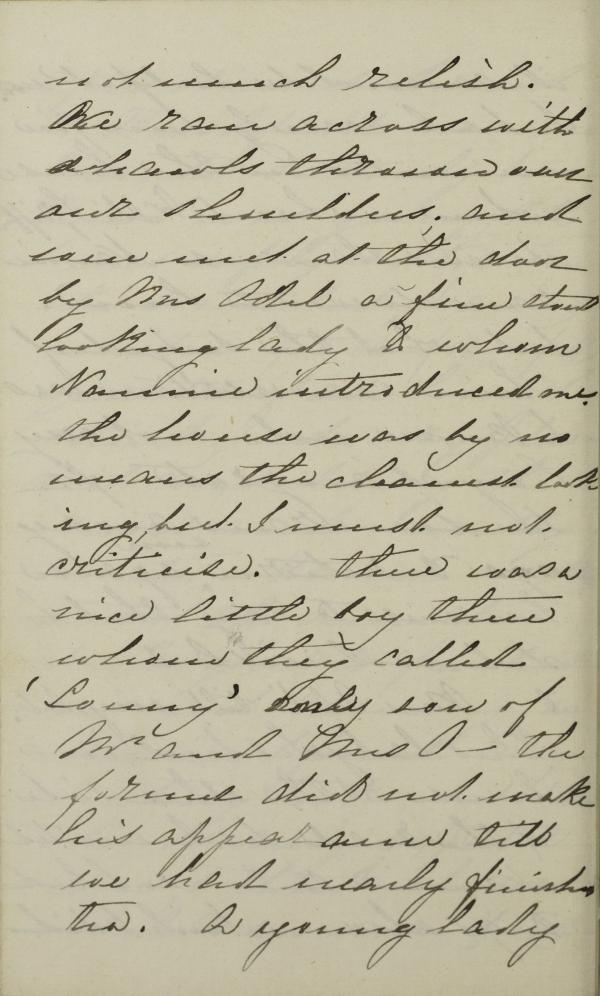 not much relish.
We ran across with
shawls thrown over
our shoulders, and
were met at the door
by Mrs Odel a fine stout
looking lady to whom
Nannie introduced me.
the house was by no
means the cleanest look
ing, but I must not
criticise. there was a
nice little boy there
whom they called
'Lonny' only son of
Mr and Mrs O— the
former did not make
his appearance till
we had nearly finished
tea. A young lady